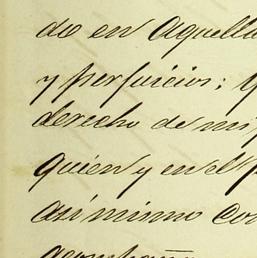 do en aquella
y perjuicios;
derecho de mi
quien y en el
asimismo con